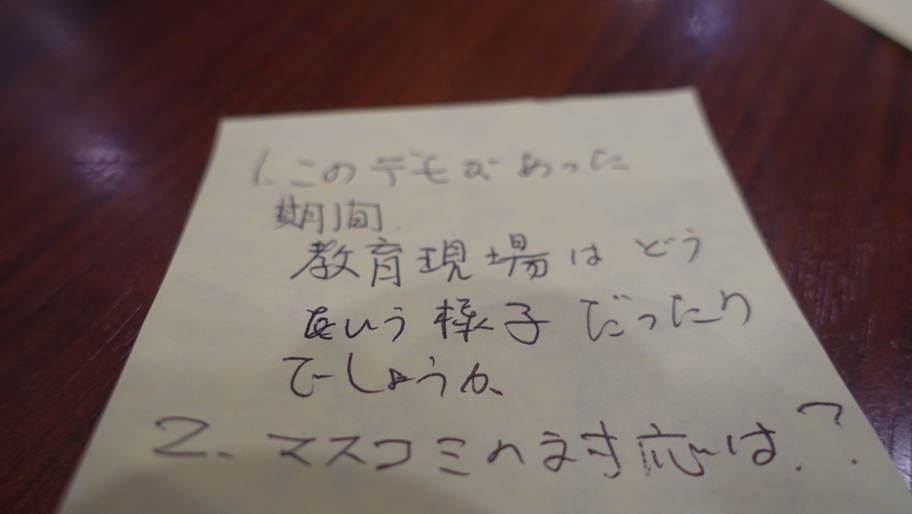 1. このデモがあった
期間
教育現場は どう
いう 様子 だったり
でしょうか、
2. マスコミの対応は?